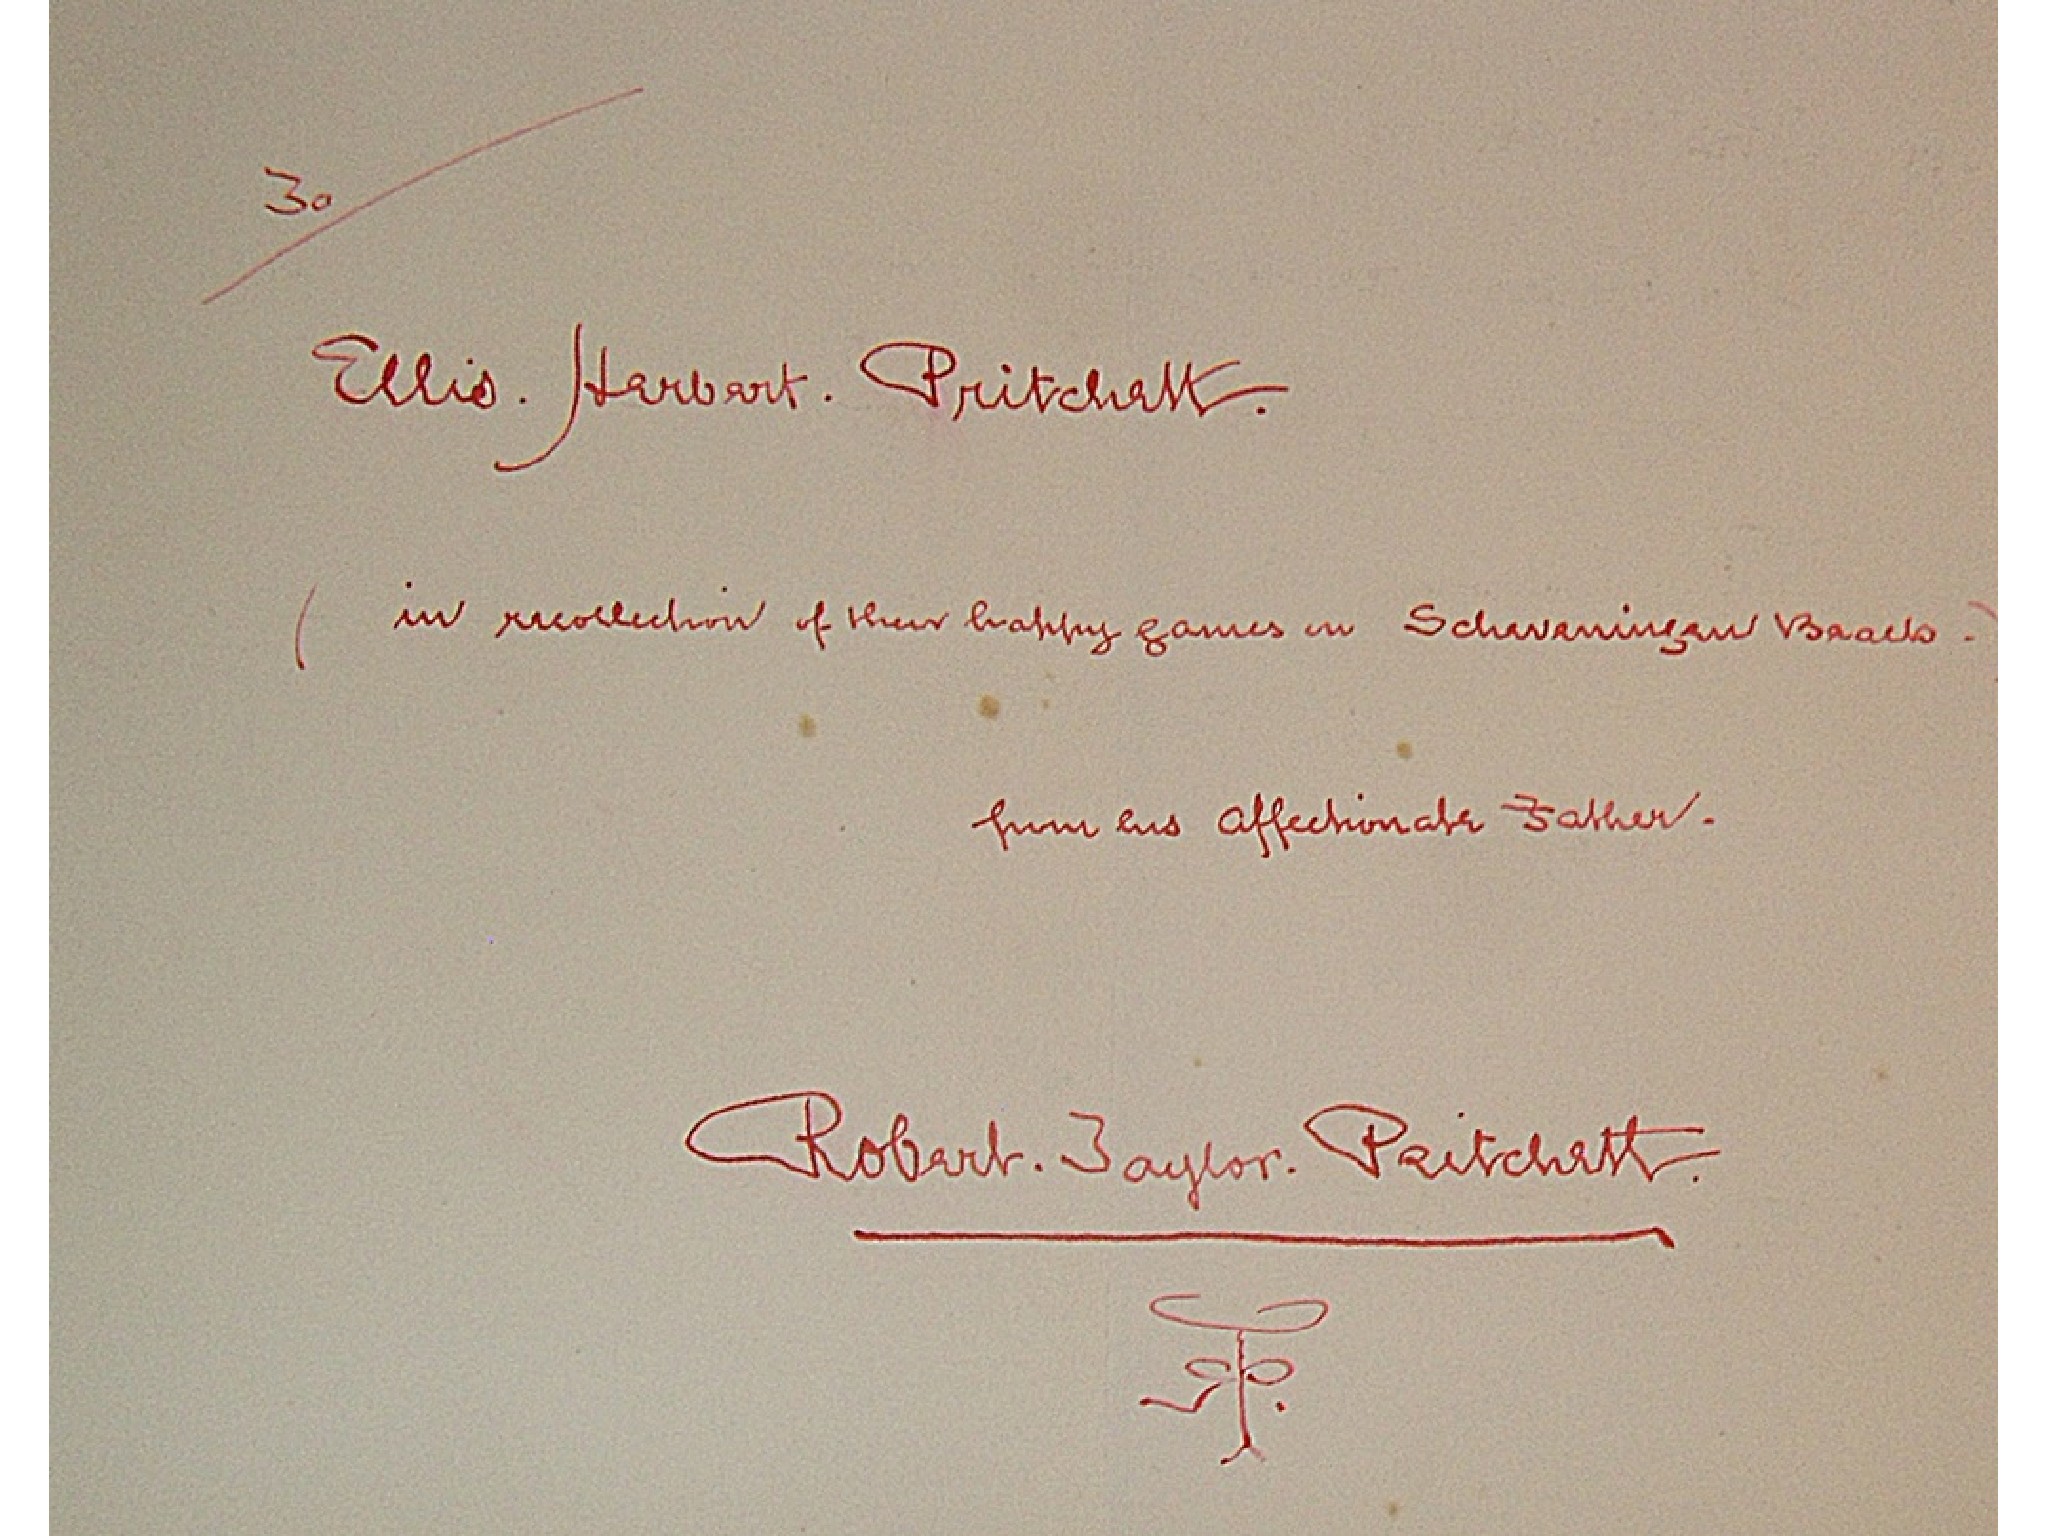 To
Ellis. Herbert. Pritchett.
( in recollection of their happy games on Scheveningen Beach. )
from his affectionate Father.
Robert. Taylor. Pritchett.